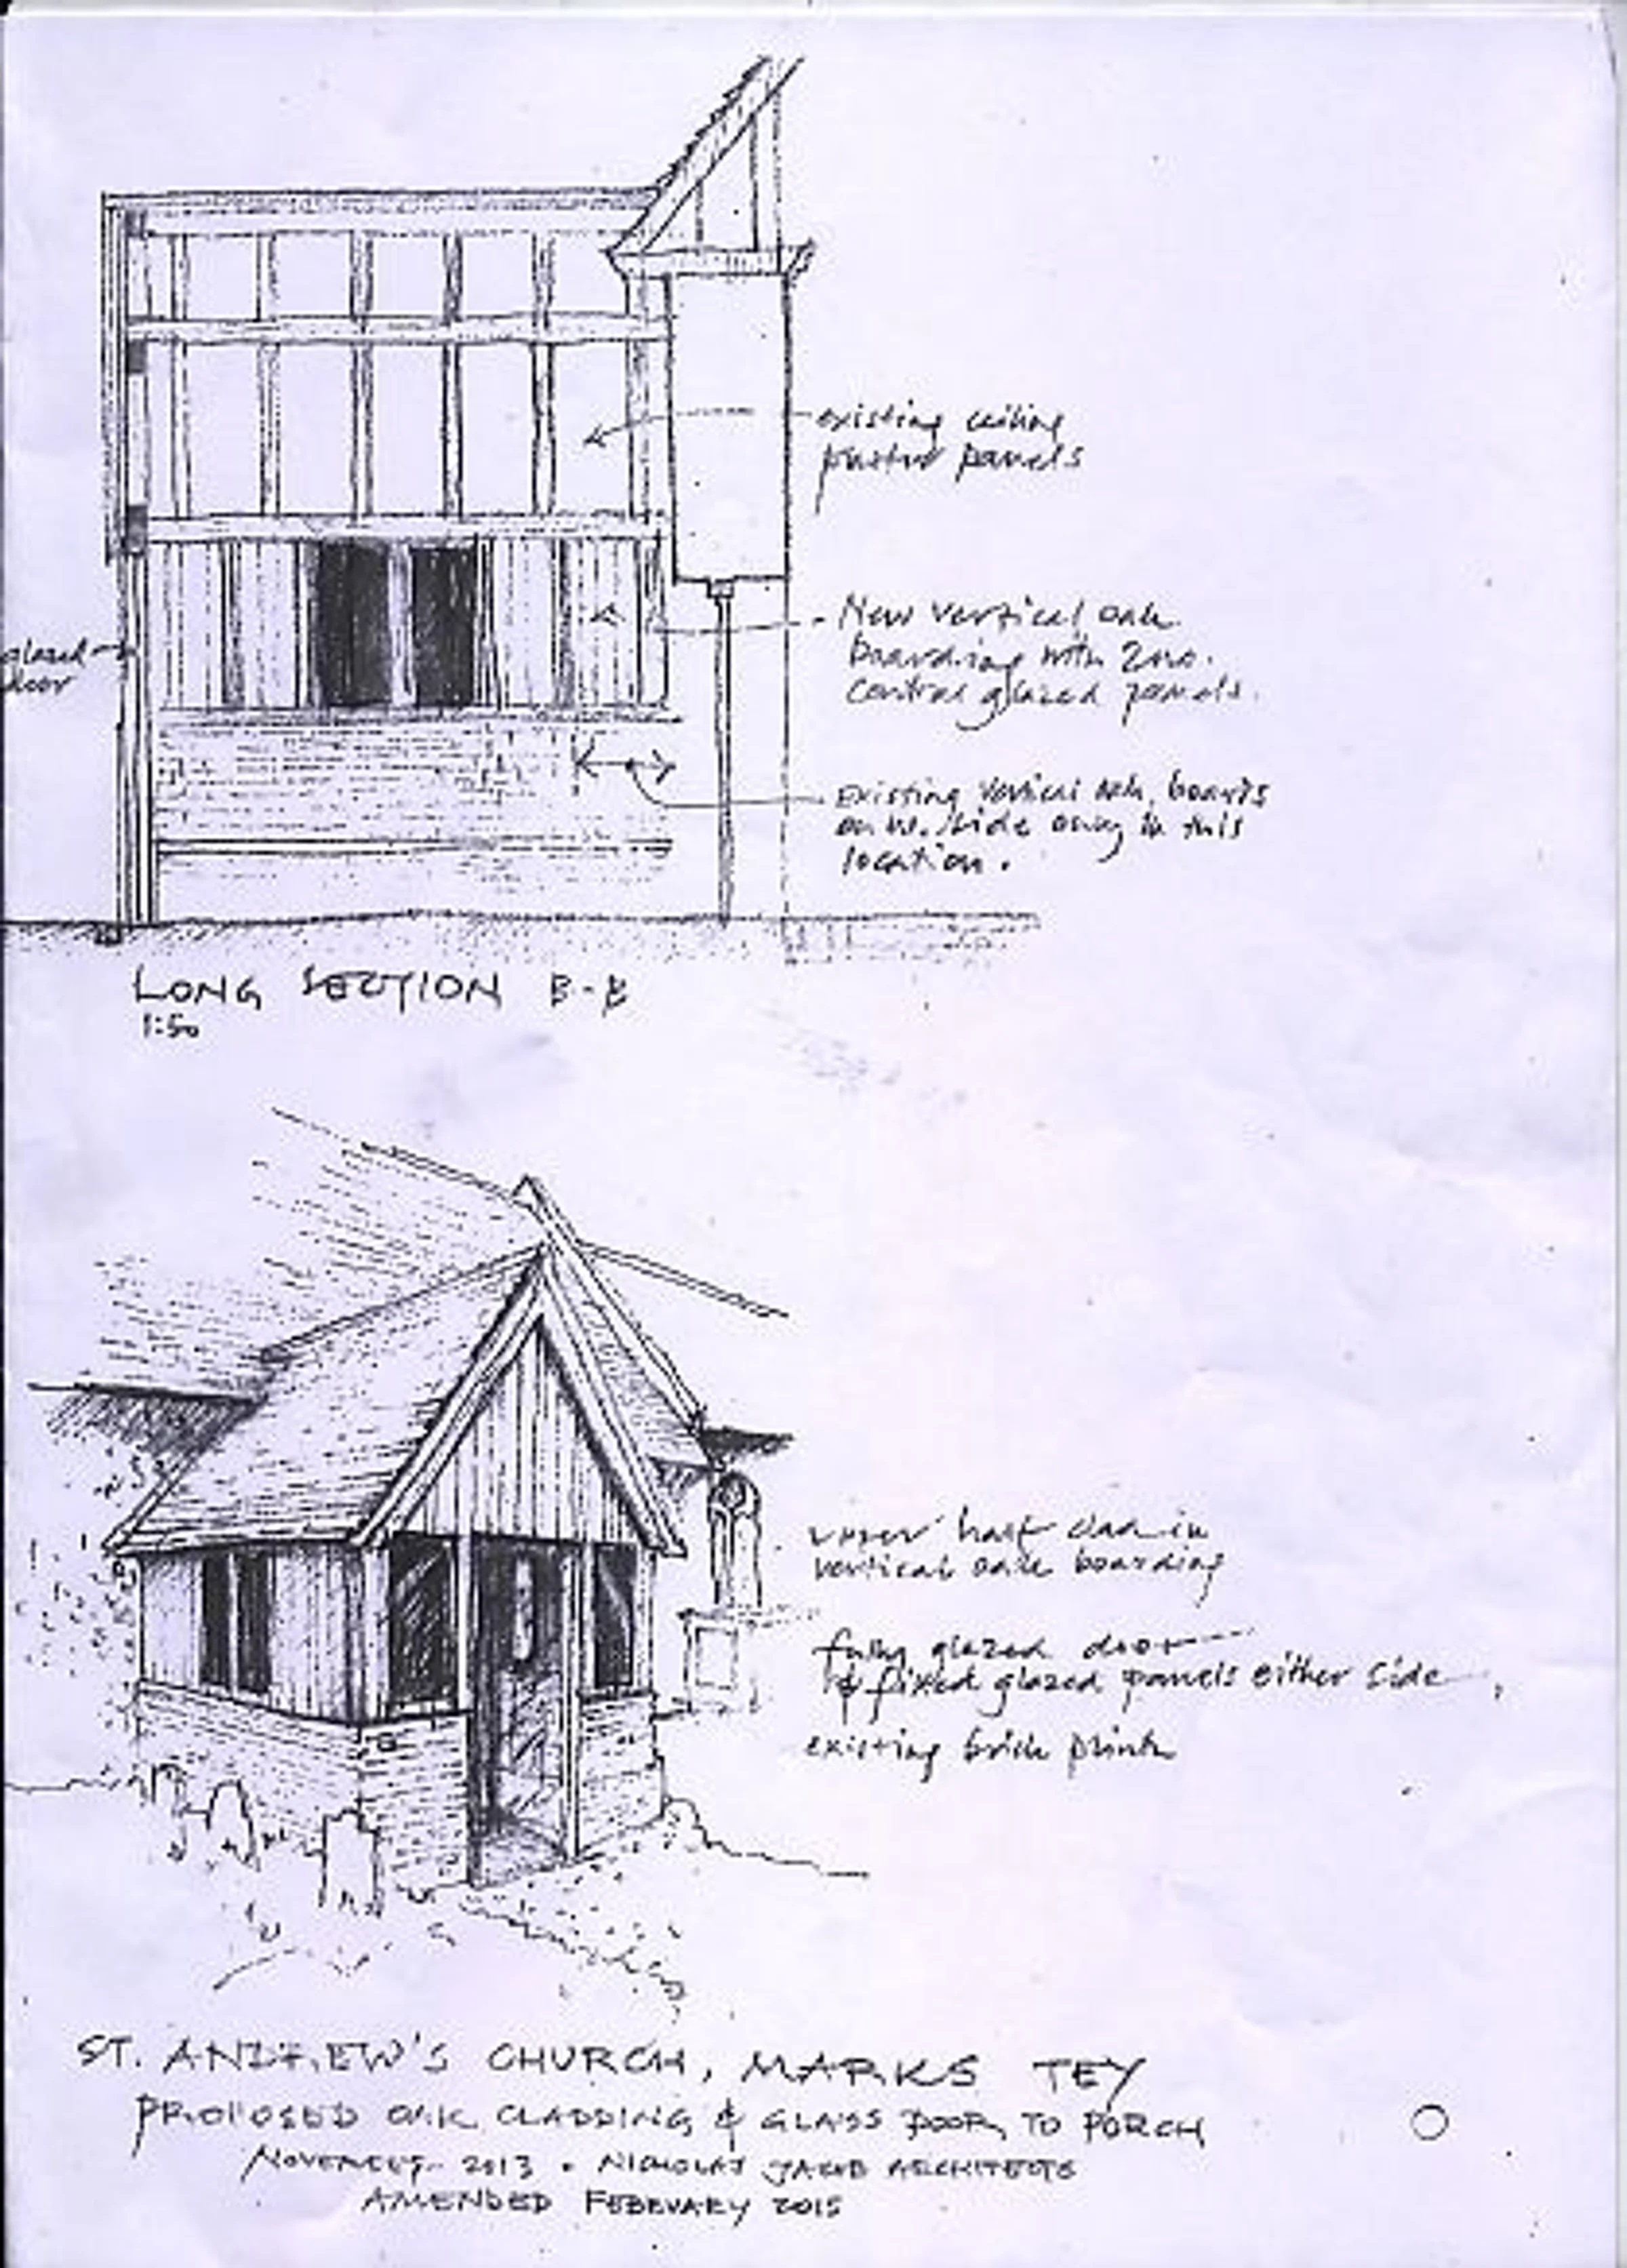 existing ceiling
plaster panels
New vertical oak
boarding with 2no.
central glazed panels.
glazed
door
Existing vertical oak boards
on W. side only in this
location.
LONG SECTION B-B
1:50
upper half clad in
vertical oak boarding
fully glazed door
& fixed glazed panels either side
existing brick plinth
ST. ANDREW'S CHURCH, MARKS TEY
PROPOSED OAK CLADDING & GLASS DOOR TO PORCH
NOVEMBER 2013 . NICHOLAS JACOB ARCHITECTS
AMENDED FEBRUARY 2015